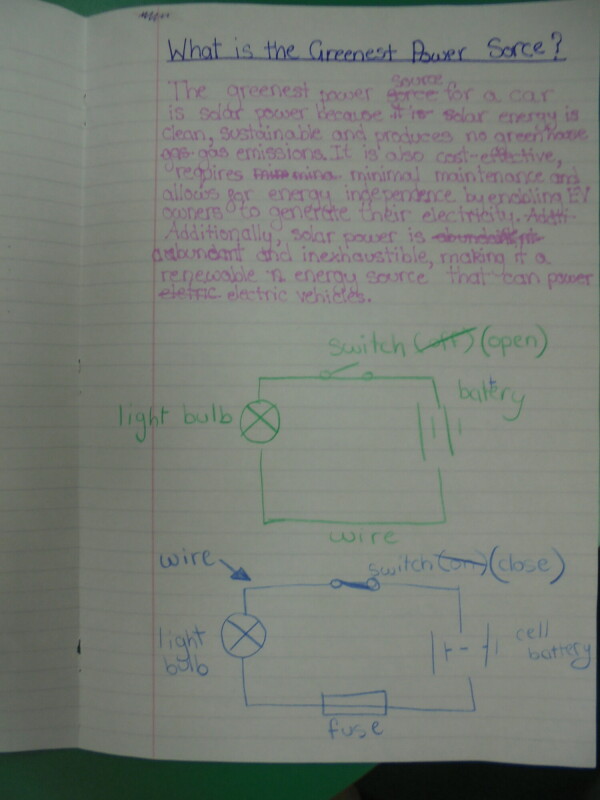 What is the Greenest Power Sorce?
The greenest power sorce source for a car
is solar power because it is solar energy is
clean, sustainable and produces no greenhouse
gas gas emissions. It is also cost-effective,
requires minimal maintenance and
allows for energy independence by enabling EV
owners to generate their electricity. Additi
Additionally, solar power is
abundant and inexhaustible, making it a
renewable energy source that can power
eletric electric vehicles.
switch (off) (open)
battery
light bulb
wire
wire
switch (on) (close)
light
bulb
cell
battery
fuse